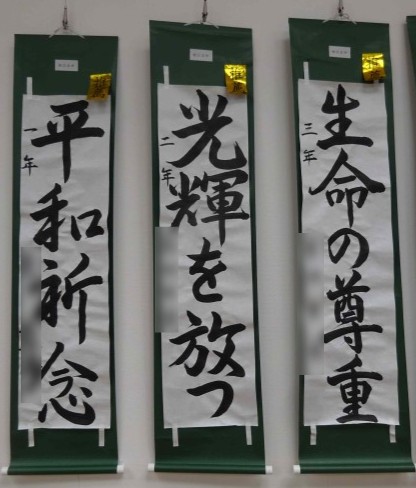 生命の尊重
三年
光輝を放つ
二年
平和祈念
一年